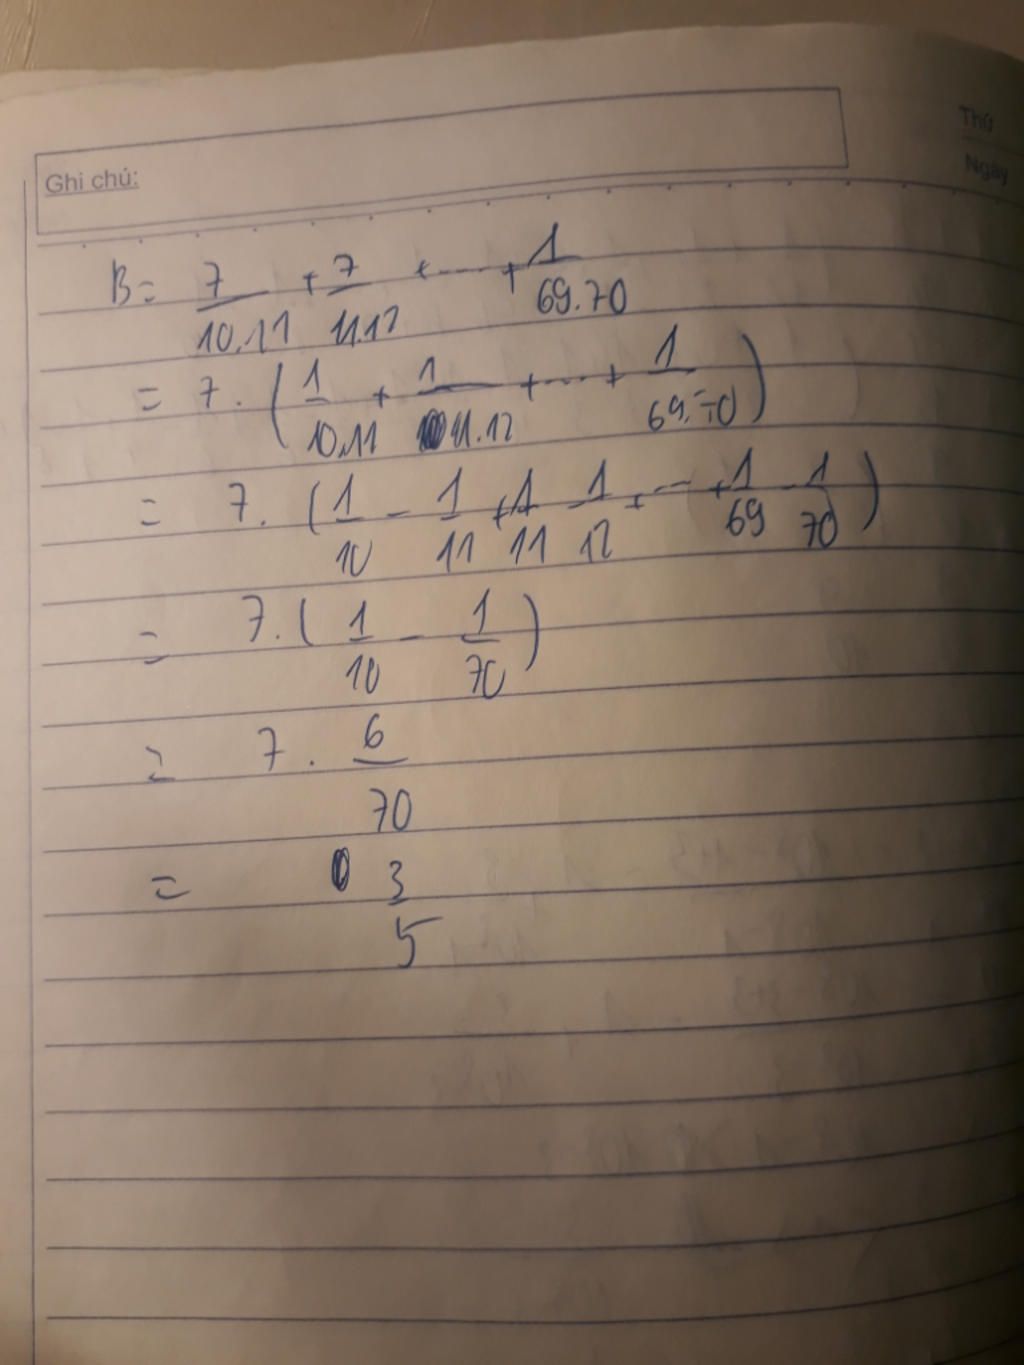 Thứ
Ngày
Ghi chú:
B = 7/10.11 + 7/11.12 + .... + 1/69.70
= 7 . ( 1/10.11 + 1/11.12 + .... + 1/69.70 )
= 7 . ( 1/10 - 1/11 + 1/11 - 1/12 + .... + 1/69 - 1/70 )
= 7 . ( 1/10 - 1/70 )
= 7 . 6/70
= 3/5